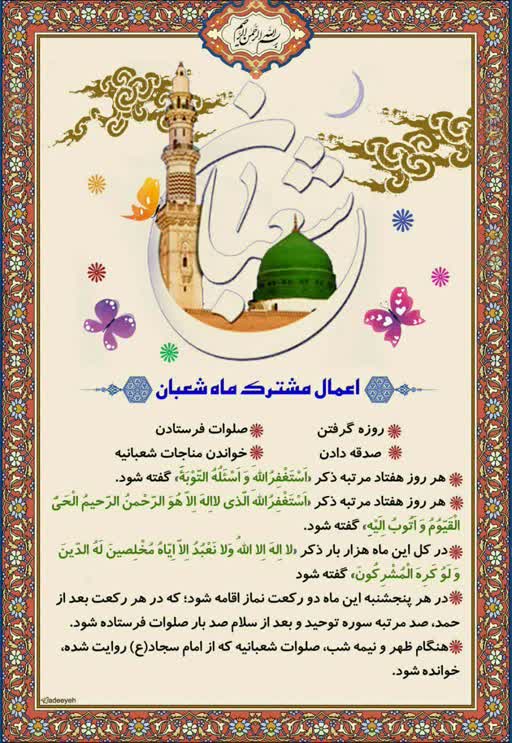 بسم الله الرحمن الرحیم
شعبان
اعمال مشترک ماه شعبان
روزه گرفتن
صلوات فرستادن
صدقه دادن
خواندن مناجات شعبانیه
هر روز هفتاد مرتبه ذکر «اَسْتَغْفِرُاللهَ وَ اَسْئَلُهُ التَّوْبَةَ» گفته شود.
هر روز هفتاد مرتبه ذکر «اَسْتَغْفِرُاللهَ الَّذی لااِلهَ اِلاّ هُوَ الرَّحْمنُ الرَّحیمُ الْحَیُّ
الْقَیّوُمُ وَ اَتُوبُ اِلَیْهِ» گفته شود.
در کل این ماه هزار بار ذکر «لا اِلهَ اِلا اللهُ وَلا نَعْبُدُ اِلاّ اِیّاهُ مُخْلِصینَ لَهُ الدّینَ
وَ لَوُ کَرِهَ الْمُشْرِکُونَ» گفته شود
در هر پنجشنبه این ماه دو رکعت نماز اقامه شود؛ که در هر رکعت بعد از
حمد، صد مرتبه سوره توحید و بعد از سلام صد بار صلوات فرستاده شود.
هنگام ظهر و نیمه شب، صلوات شعبانیه که از امام سجاد(ع) روایت شده،
خوانده شود.